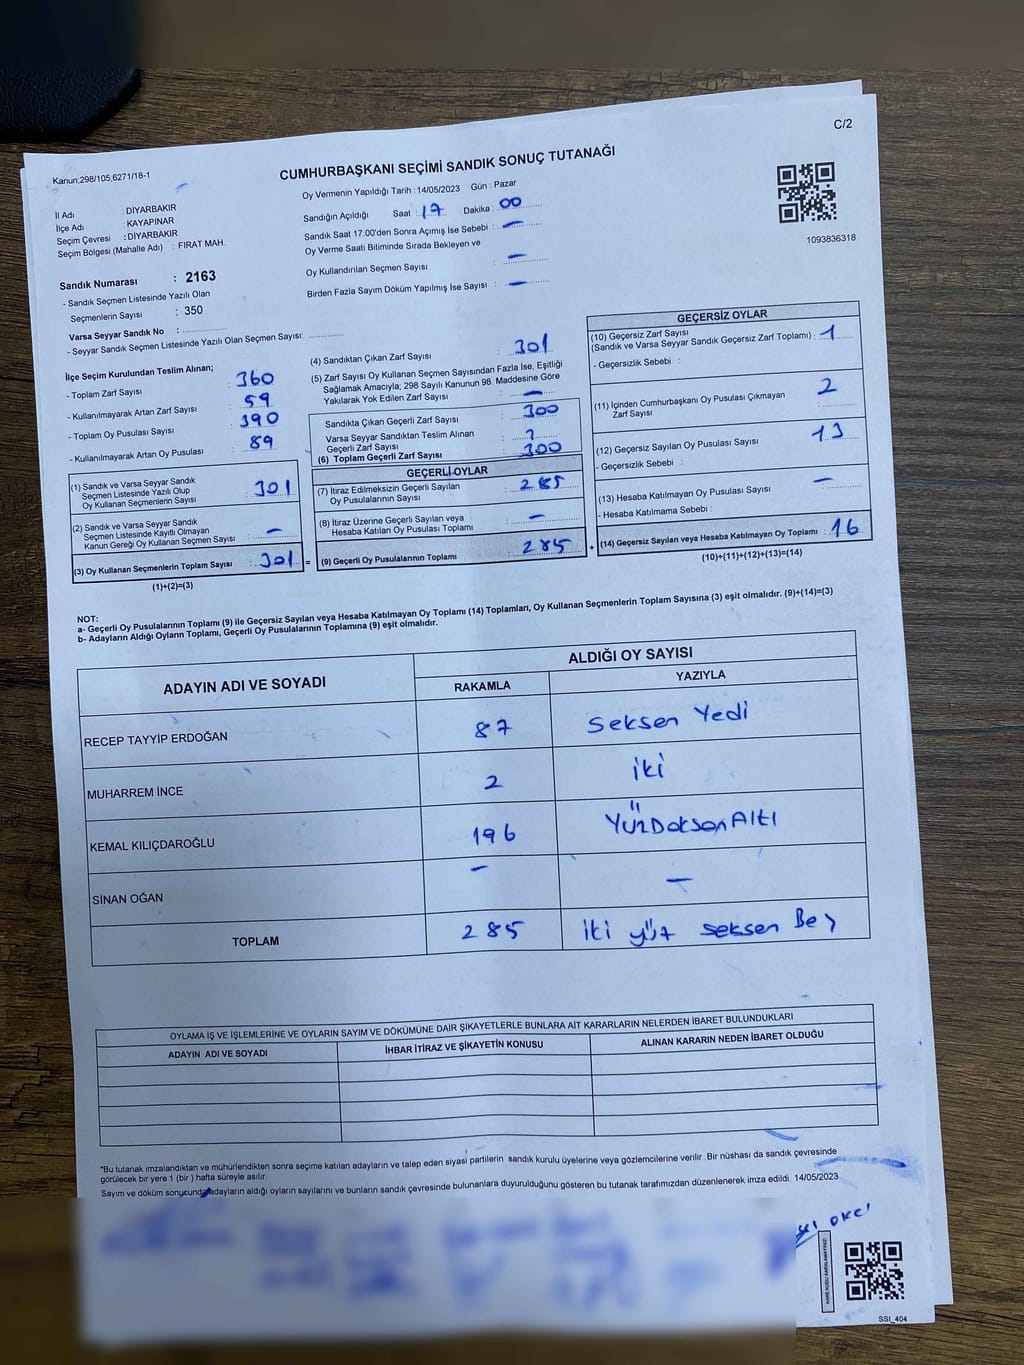 C/2
Kanun,298/105,6271/18-1
CUMHURBAŞKANI SEÇİMİ SANDIK SONUÇ TUTANAĞI
Oy Vermenin Yapıldığı Tarih : 14/05/2023 Gün : Pazar
İl Adı : DİYARBAKIR
İlçe Adı : KAYAPINAR
Seçim Çevresi : DİYARBAKIR
Seçim Bölgesi (Mahalle Adı) : FIRAT MAH.
Sandığın Açıldığı Saat 17 Dakika : 00
Sandık Saat 17:00'den Sonra Açımış İse Sebebi : —
Oy Verme Saati Bitiminde Sırada Bekleyen ve
Oy Kullandırılan Seçmen Sayısı : —
Birden Fazla Sayım Döküm Yapılmış İse Sayısı : —
1093836318
Sandık Numarası : 2163
- Sandık Seçmen Listesinde Yazılı Olan
Seçmenlerin Sayısı : 350
Varsa Seyyar Sandık No :
- Seyyar Sandık Seçmen Listesinde Yazılı Olan Seçmen Sayısı:
İlçe Seçim Kurulundan Teslim Alınan;
- Toplam Zarf Sayısı : 360
- Kullanılmayarak Artan Zarf Sayısı : 59
- Toplam Oy Pusulası Sayısı : 390
- Kullanılmayarak Artan Oy Pusulası : 89
(1) Sandık ve Varsa Seyyar Sandık
Seçmen Listesinde Yazılı Olup
Oy Kullanan Seçmenlerin Sayısı : 301
(2) Sandık ve Varsa Seyyar Sandık
Seçmen Listesinde Kayıtlı Olmayan
Kanun Gereği Oy Kullanan Seçmen Sayısı : —
(3) Oy Kullanan Seçmenlerin Toplam Sayısı : 301 =
(1)+(2)=(3)
(4) Sandıktan Çıkan Zarf Sayısı : 301
(5) Zarf Sayısı Oy Kullanan Seçmen Sayısından Fazla İse, Eşitliği
Sağlamak Amacıyla; 298 Sayılı Kanunun 98. Maddesine Göre
Yakılarak Yok Edilen Zarf Sayısı : —
Sandıkta Çıkan Geçerli Zarf Sayısı : 300
Varsa Seyyar Sandıktan Teslim Alınan
Geçerli Zarf Sayısı :
(6) Toplam Geçerli Zarf Sayısı : 300
GEÇERLİ OYLAR
(7) İtiraz Edilmeksizin Geçerli Sayılan
Oy Pusulalarının Sayısı : 285
(8) İtiraz Üzerine Geçerli Sayılan veya
Hesaba Katılan Oy Pusulası Toplamı : —
(9) Geçerli Oy Pusulalarının Toplamı : 285 +
GEÇERSİZ OYLAR
(10) Geçersiz Zarf Sayısı
(Sandık ve Varsa Seyyar Sandık Geçersiz Zarf Toplamı) : 1
- Geçersizlik Sebebi :
(11) İçinden Cumhurbaşkanı Oy Pusulası Çıkmayan
Zarf Sayısı : 2
(12) Geçersiz Sayılan Oy Pusulası Sayısı : 13
- Geçersizlik Sebebi :
(13) Hesaba Katılmayan Oy Pusulası Sayısı : —
- Hesaba Katılmama Sebebi :
(14) Geçersiz Sayılan veya Hesaba Katılmayan Oy Toplamı : 16
(10)+(11)+(12)+(13)=(14)
NOT:
a- Geçerli Oy Pusulalarının Toplamı (9) ile Geçersiz Sayılan veya Hesaba Katılmayan Oy Toplamı (14) Toplamları, Oy Kullanan Seçmenlerin Toplam Sayısına (3) eşit olmalıdır. (9)+(14)=(3)
b- Adayların Aldığı Oyların Toplamı, Geçerli Oy Pusulalarının Toplamına (9) eşit olmalıdır.
ADAYIN ADI VE SOYADI
ALDIĞI OY SAYISI
RAKAMLA YAZIYLA
RECEP TAYYİP ERDOĞAN 87 Seksen Yedi
MUHARREM İNCE 2 iki
KEMAL KILIÇDAROĞLU 196 YüzDoksanAltı
SİNAN OĞAN — —
TOPLAM 285 iki yüz seksen Beş
OYLAMA İŞ VE İŞLEMLERİNE VE OYLARIN SAYIM VE DÖKÜMÜNE DAİR ŞİKAYETLERLE BUNLARA AİT KARARLARIN NELERDEN İBARET BULUNDUKLARI
ADAYIN ADI VE SOYADI İHBAR İTİRAZ VE ŞİKAYETİN KONUSU ALINAN KARARIN NEDEN İBARET OLDUĞU
*Bu tutanak imzalandıktan ve mühürlendikten sonra seçime katılan adayların ve talep eden siyasi partilerin sandık kurulu üyelerine veya gözlemcilerine verilir .Bir nüshası da sandık çevresinde
görülecek bir yere 1 (bir ) hafta süreyle asılır.
Sayım ve döküm sonucunda adayların aldığı oyların sayılarını ve bunların sandık çevresinde bulunanlara duyurulduğunu gösteren bu tutanak tarafımızdan düzenlenerek imza edildi. 14/05/2023
SSI_404